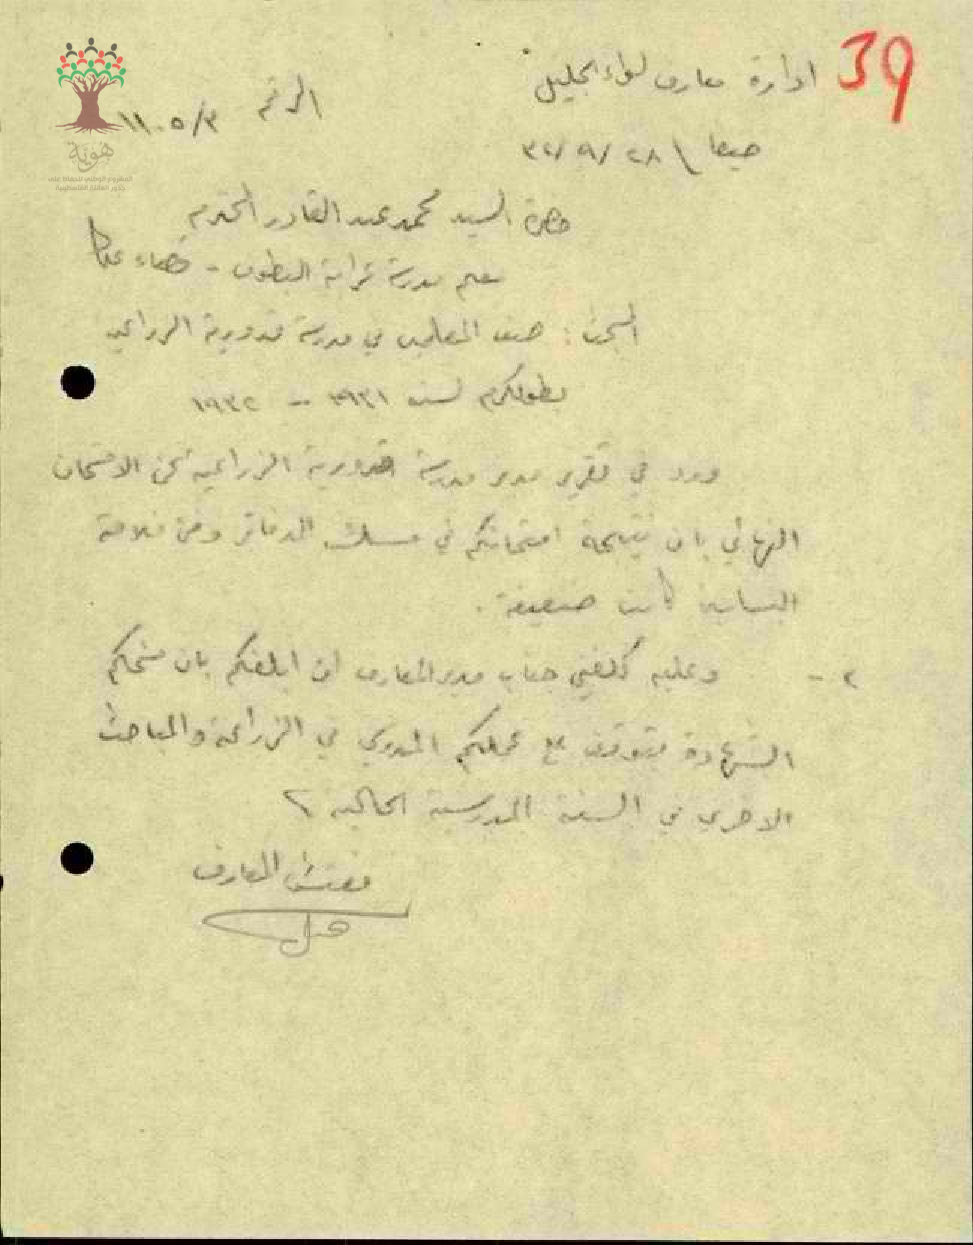 39
ادارة معارف لواء الجليل
الرقم ١١٠٥/٣
حيفا \ ٢٨/٩/٣٢
حضرة السيد محمد عبد القادر المحترم
معلم مدرسة عرابة البطوف - قضاء عكا
المبحث : صف المعلمين في مدرسة خضورية الزراعية
بطولكرم لسنة ١٩٣١ - ١٩٣٢
ورد في تقرير مدير مدرسة خضورية الزراعية عن الامتحان
النهائي بان نتيجة امتحانكم في مسك الدفاتر وفي فلاحة
البساتين كانت ضعيفة .
٢ - وعليه كلفني جناب مدير المعارف ان ابلغكم بان منحكم
الشهادة متوقف على عملكم المدرسي في الزراعة والمباحث
الاخرى في السنة المدرسية الحالية
مفتش المعارف
هوية
المشروع الوطني للحفاظ على
جذور العائلة الفلسطينية